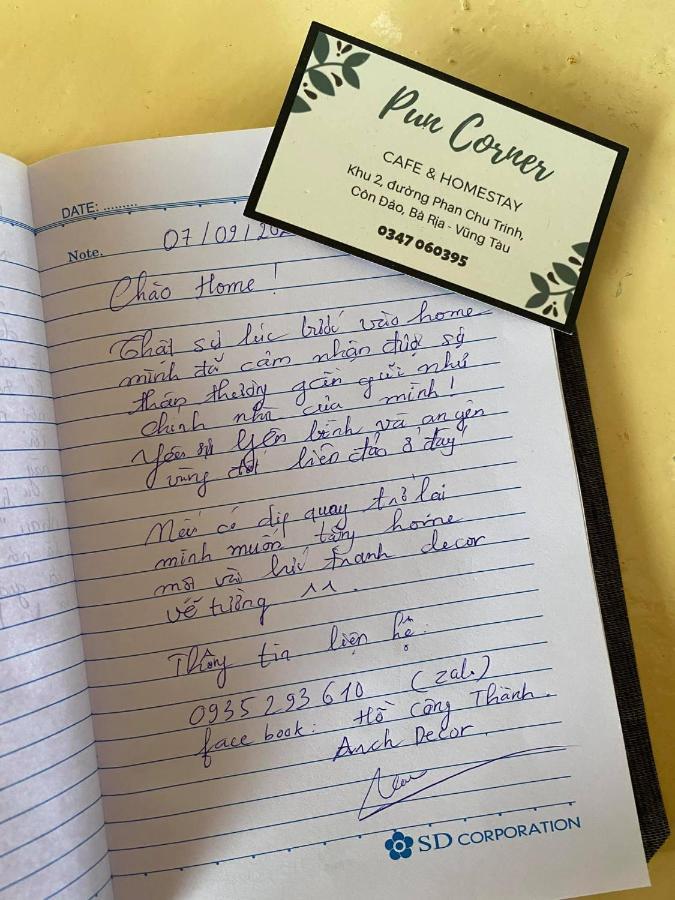 Pun Corner
CAFE & HOMESTAY
Khu 2, đường Phan Chu Trinh,
Côn Đảo, Bà Rịa - Vũng Tàu
0347 060395
DATE: .........
Note.
07/09/202
Chào Home !
Thật sự lúc bước vào home
mình đã cảm nhận được sự
thân thương gần gũi như
chính nhà của mình !
Yêu sự yên bình và an yên
vùng đất biển đảo ở đây
Nếu có dịp quay trở lại
mình muốn tặng home
một vài bức tranh decor
vẽ tường ^^.
Thông tin liện hệ:
0935 293 610 (zalo)
face book: Hồ Công Thành.
Arch Decor.
SD CORPORATION